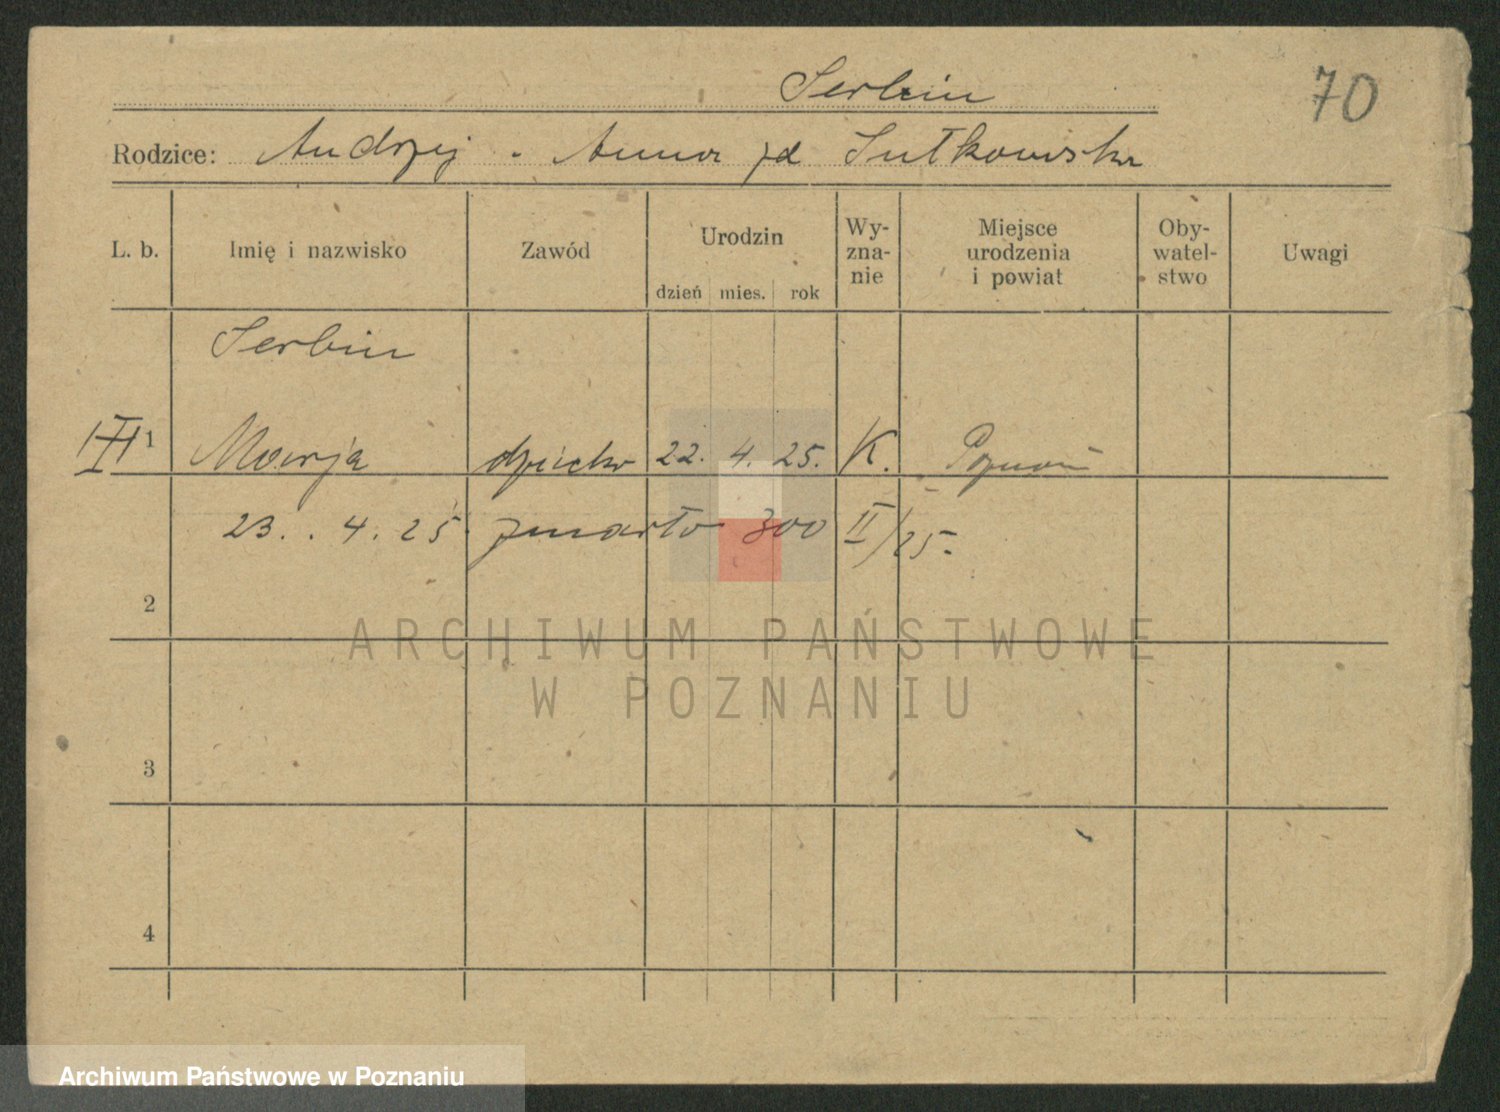 Serbin
70
Rodzice: Andrzej - Anna zd Sułkowska
L. b. Imię i nazwisko Zawód Urodzin dzień mies. rok Wy-zna-nie Miejsce urodzenia i powiat Oby-watel-stwo Uwagi
Serbin
1 Marja dziecko 22. 4. 25. K. Poznań
23. . 4. 25 zmarło 300 II/25.
2
ARCHIWUM PAŃSTWOWE
W POZNANIU
3
4
Archiwum Państwowe w Poznaniu